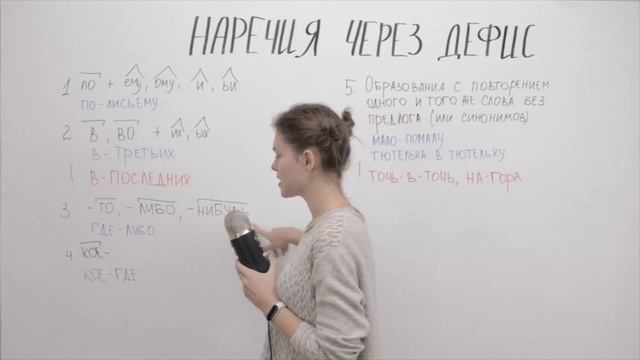 НАРЕЧИЯ ЧЕРЕЗ ДЕФИС
1 ПО + ЕМУ, ОМУ, И, ЬИ
ПО-ЛИСЬЕМУ
2. В, ВО + ИХ, ЫХ
В-ТРЕТЬИХ
! В-ПОСЛЕДНИХ
3 -ТО, -ЛИБО, -НИБУДЬ
ГДЕ-ЛИБО
4 КОЕ-
КОЕ-ГДЕ
5. ОБРАЗОВАНИЯ С ПОВТОРЕНИЕМ
ОДНОГО И ТОГО ЖЕ СЛОВА БЕЗ
ПРЕДЛОГА (ИЛИ СИНОНИМОВ)
МАЛО-ПОМАЛУ
ТЮТЕЛЬКА В ТЮТЕЛЬКУ
! ТОЧЬ-В-ТОЧЬ, НА-ГОРА